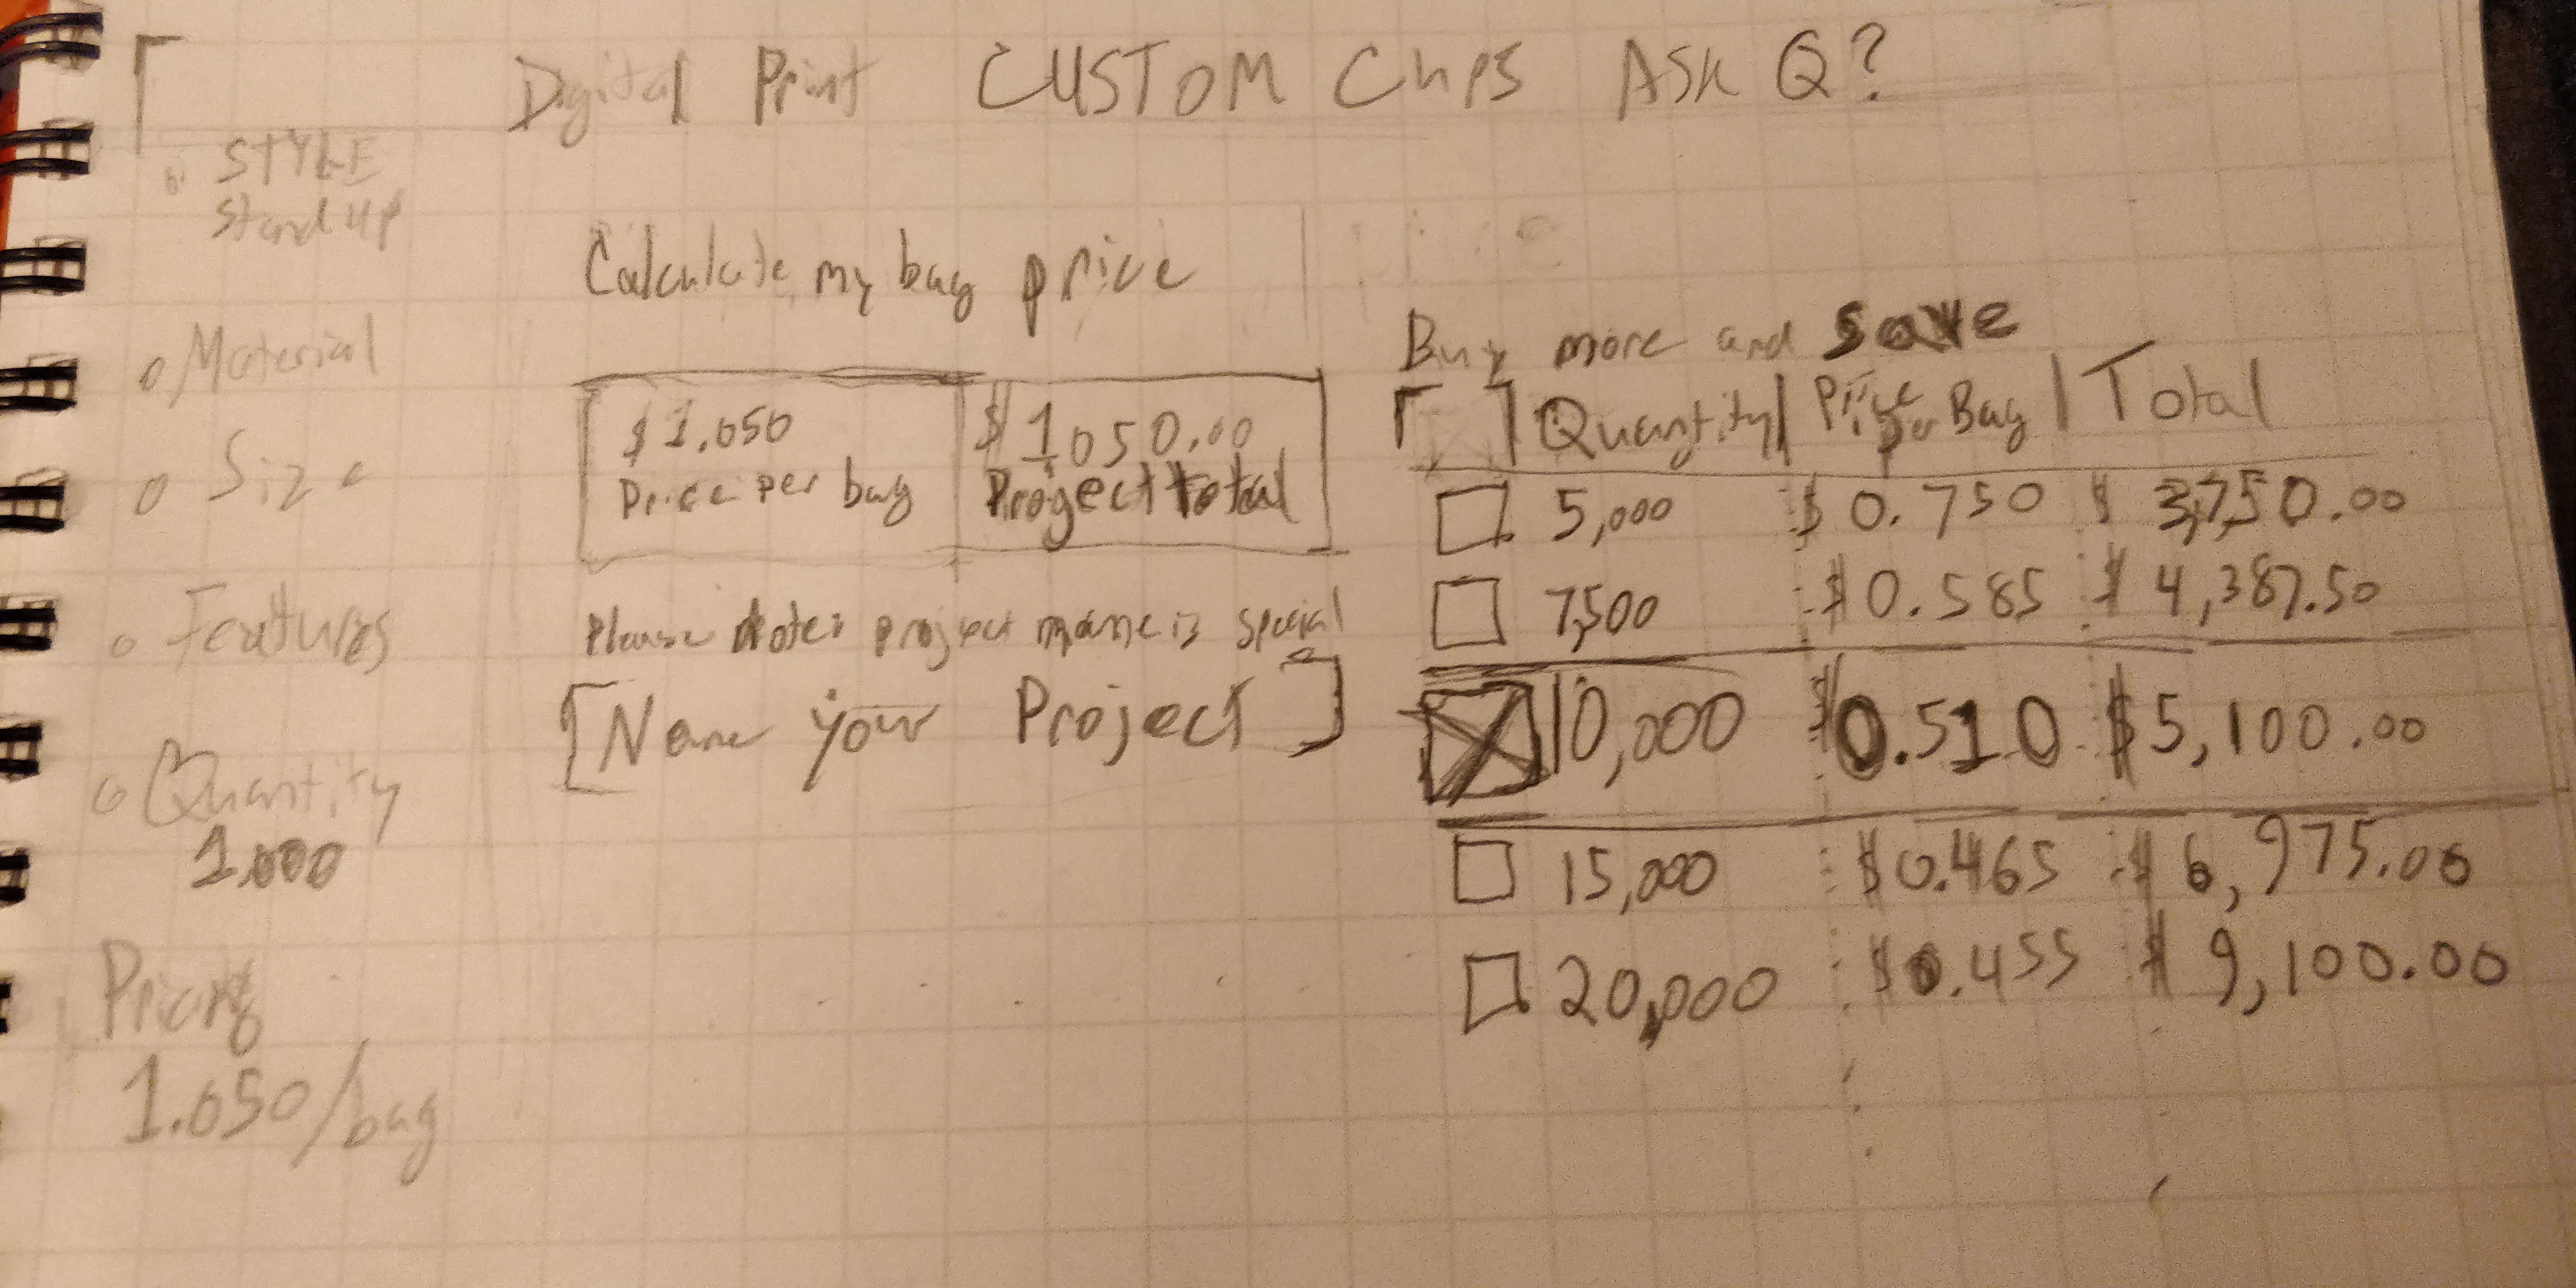 Digital Print CUSTOM Chips ASK Q?
STYLE
Stand UP
Material
Size
Features
Quantity
1.000
Pricing
1.050/bag
Calculate my bag price
$1.050 $1,050.00
Price per bag Progect total
Please Note: project name is special
[Name your Project]
Buy more and save
Quantity | Price Per Bag | Total
5,000 $0.750 $3,750.00
7,500 $0.585 $4,387.50
10,000 $0.510 $5,100.00
15,000 $0.465 $6,975.00
20,000 $0.455 $9,100.00